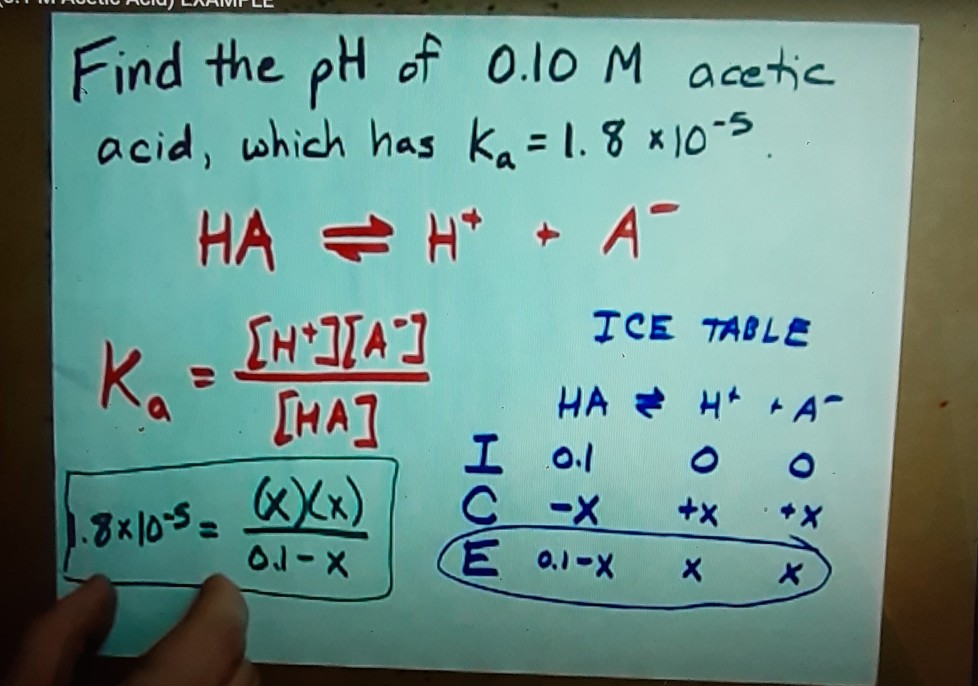 Acetic Acid) EXAMPLE
Find the pH of 0.10 M acetic
acid, which has Ka = 1.8 x10⁻⁵.
HA ⇌ H⁺ + A⁻
Ka = [H⁺][A⁻] / [HA]
1.8x10⁻⁵ = (x)(x) / 0.1-x
ICE TABLE
HA ⇌ H⁺ + A⁻
I 0.1 0 0
C -x +x +x
E 0.1-x x x